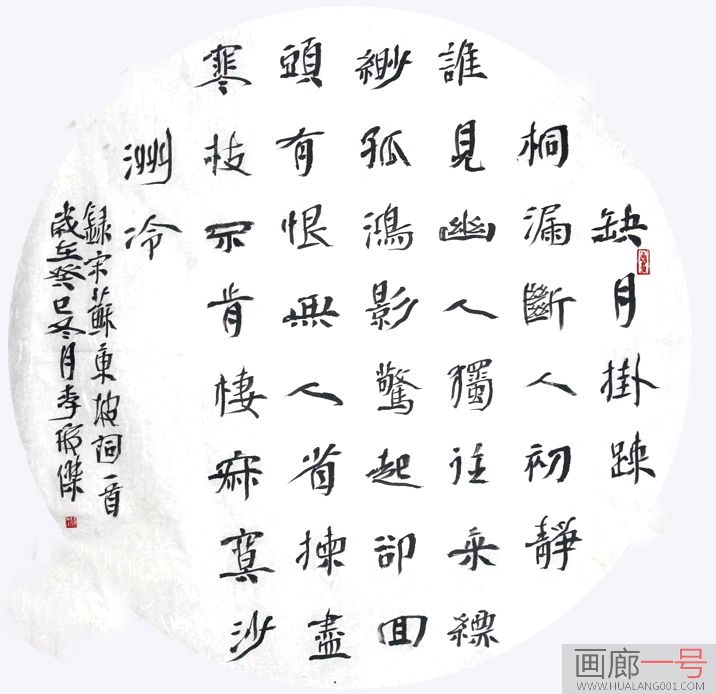 缺月掛踈
桐漏斷人初靜
誰見幽人獨往來縹
緲孤鴻影驚起卻回
頭有恨無人省揀盡
寒枝不肯棲寂寞沙
洲冷
錄宋蘇東坡詞一首
歲在癸巳冬月李傑
画廊一号
WWW.HUALANG001.COM